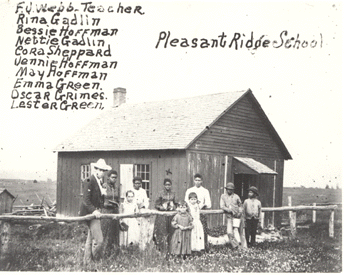 F.J. Webb-Teacher
Rina Gadlin
Bessie Hoffman
Nettie Gadlin
Cora Sheppard
Jennie Hoffman
May Hoffman
Emma Green.
Oscar Grimes.
Lester Green.
Pleasant Ridge School